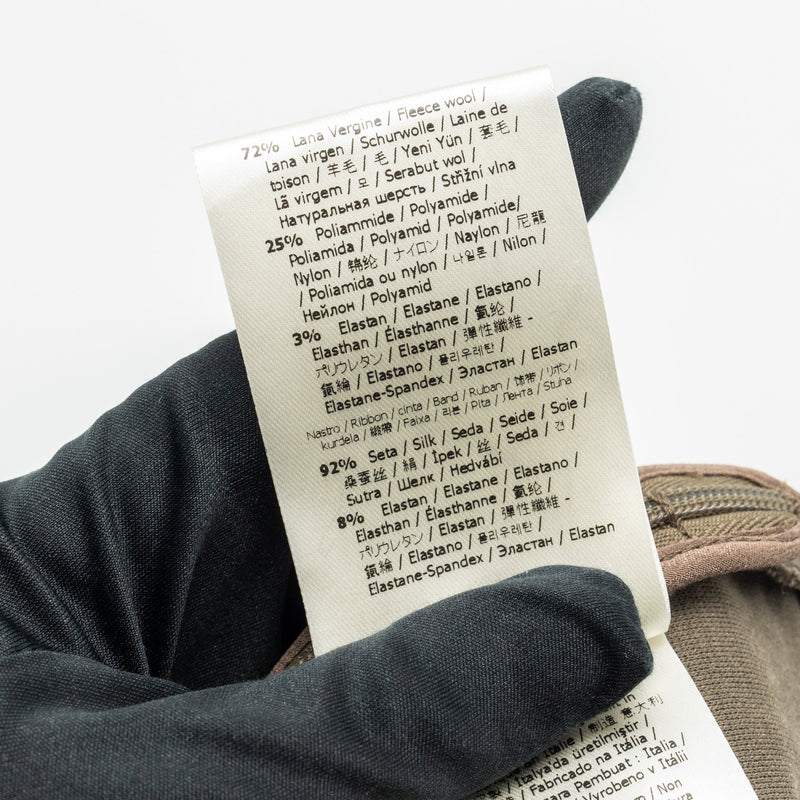 72% Lana Vergine / Fleece wool /
Lana virgen / Schurwolle / Laine de
toison / 羊毛 / 毛 / Yeni Yün / 套毛 /
Lã virgem / 모 / Serabut wol /
Натуральная шерсть / Střižní vlna
25% Poliammide / Polyamide /
Poliamida / Polyamid / Polyamide/
Nylon / 锦纶 / ナイロン / Naylon / 尼龍
/ Poliamida ou nylon / 나일론 / Nilon /
Нейлон / Polyamid
3% Elastan / Elastane / Elastano /
Elasthan / Élasthanne / 氨纶 /
ポリウレタン / Elastan / 彈性纖維 -
氨綸 / Elastano / 폴리우레탄 /
Elastane-Spandex / Эластан / Elastan
Nastro / Ribbon / cinta / Band / Ruban / 饰带 / リボン /
kurdela / 緞帶 / Faixa / 리본 / Pita / Лента / Stuha
92% Seta / Silk / Seda / Seide / Soie /
桑蚕丝 / 絹 / İpek / 丝 / Seda / 견 /
Sutra / Шелк / Hedvábí
8% Elastan / Elastane / Elastano /
Elasthan / Élasthanne / 氨纶 /
ポリウレタン / Elastan / 彈性纖維 -
氨綸 / Elastano / 폴리우레탄 /
Elastane-Spandex / Эластан / Elastan
in
/ 制造 意大利
Italie /
/ İtalya'da üretilmiştir /
/ Fabricado na Itália /
Pembuat : Italia /
/ Vyrobeno v Itálii
/ Non